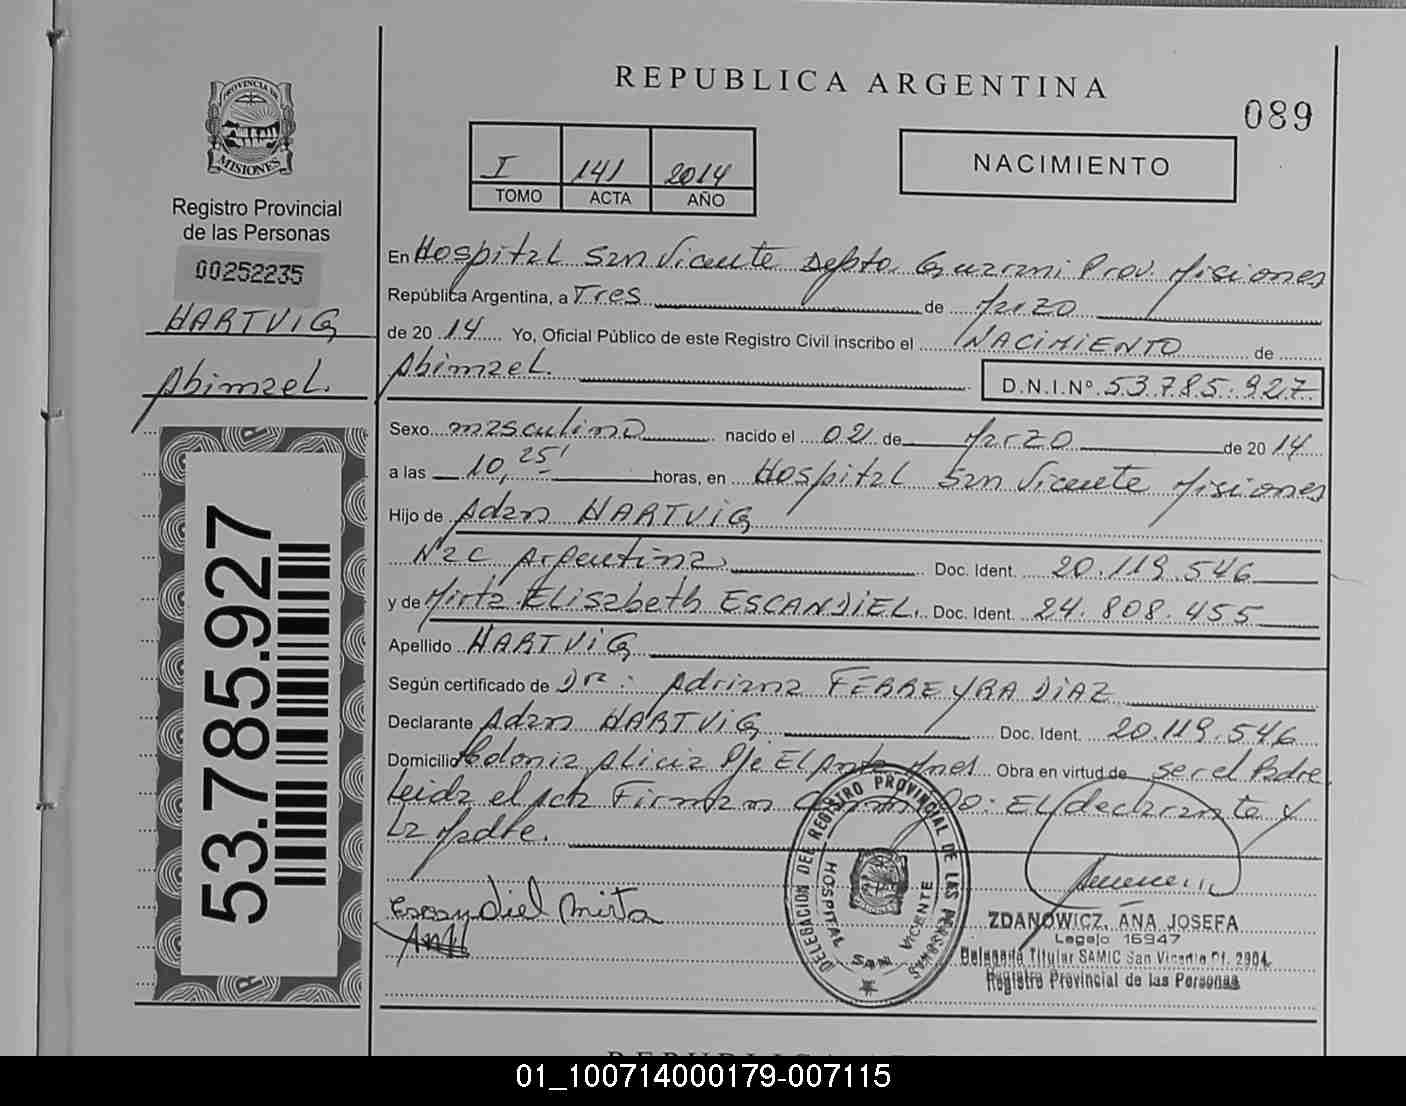 REPUBLICA ARGENTINA
089
PROVINCIA DE
MISIONES
Registro Provincial
de las Personas
00252235
HARTVIG
Abimael.
53.785.927
I 141 2014
TOMO ACTA AÑO
NACIMIENTO
En Hospital San Vicente Depto Guarani Prov. Misiones
República Argentina, a Tres de Marzo
de 2014 Yo, Oficial Público de este Registro Civil inscribo el NACIMIENTO de
Abimael. D.N.I.Nº 53.785.927
Sexo masculino nacido el 02 de Marzo de 2014
a las 10,25' horas, en Hospital San Vicente Misiones
Hijo de Adan HARTVIG
Nac Argentina Doc. Ident. 20.119.546
y de Mirta ELisabeth ESCANDIEL. Doc. Ident. 24.808.455
Apellido HARTVIG
Según certificado de Dra: Adriana FERREYRA DIAZ
Declarante Adan HARTVIG Doc. Ident. 20.119.546
Domicilio Colonia Alicia Pje El Obra en virtud de ser el Padre
Leida el acta Firman EL declarante y
La Madre.
Escandiel Mirta
DELEGACION DEL REGISTRO PROVINCIAL DE LAS PERSONAS
HOSPITAL SAN VICENTE
ZDANOWICZ, ANA JOSEFA
Legajo 16947
Delegada Titular SAMIC San Vicente Dt. 2904
Registro Provincial de las Personas
01_100714000179-007115